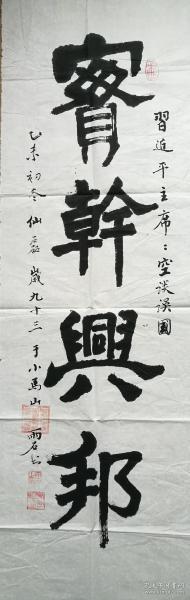 習近平主席：空談誤國
實幹興邦
乙未初冬仙嚴歲九十三于小馬山
雨石書